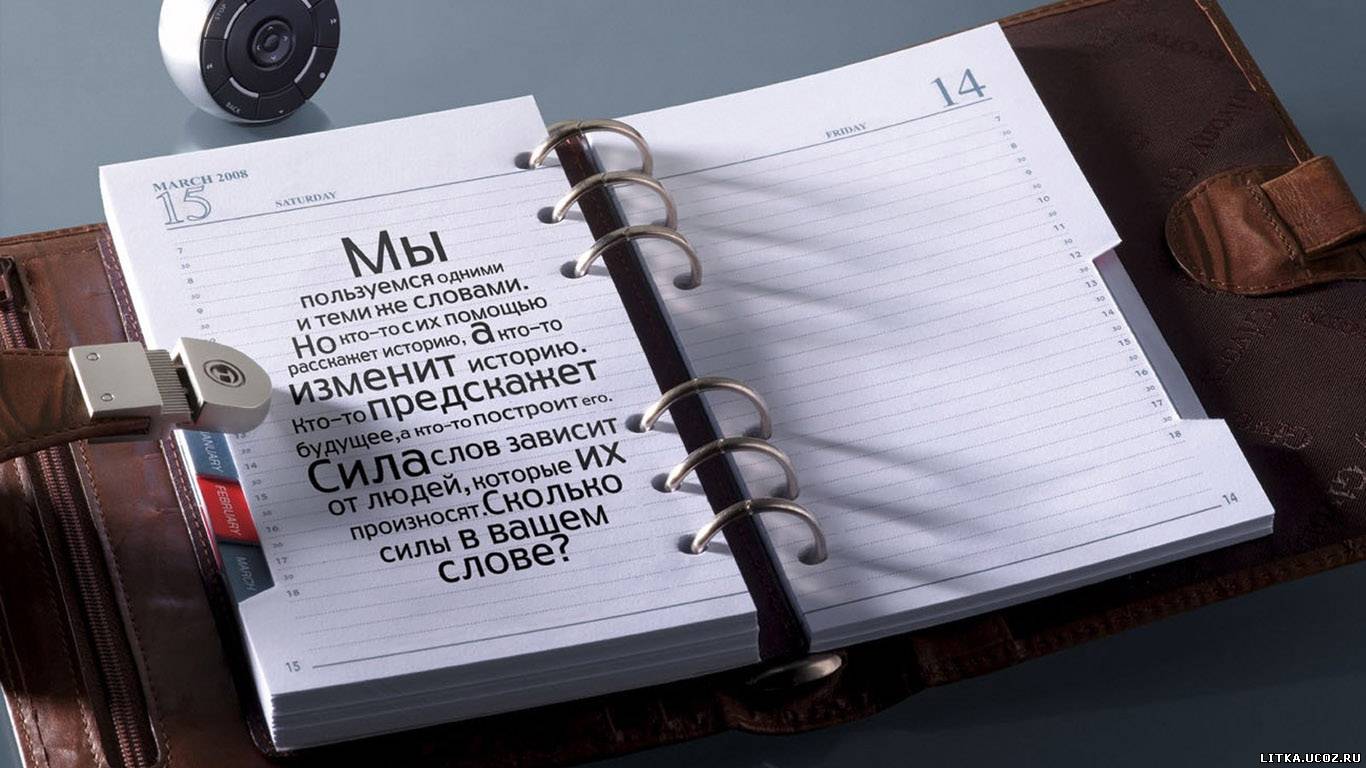 STOP
BACK
MARCH 2008
15
SATURDAY
7
30
8
30
9
30
Мы
пользуемся одними
и теми же словами.
Но кто-то с их помощью
расскажет историю, а кто-то
изменит историю.
Кто-то предскажет
будущее, а кто-то построит его.
Сила слов зависит
от людей, которые их
произносят. Сколько
силы в вашем
слове?
13
30
14
30
15
30
16
30
17
30
18
FEBRUARY
MARCH
15
14
FRIDAY
7
30
8
30
9
30
10
30
11
30
12
30
13
30
14
30
15
30
16
30
17
30
18
14
LITKA.UCOZ.RU